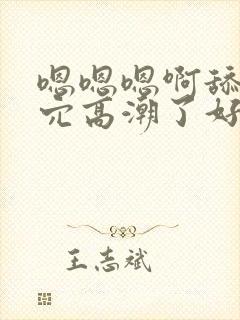 嗯嗯嗯啊舔
穴高潮了好
王志斌